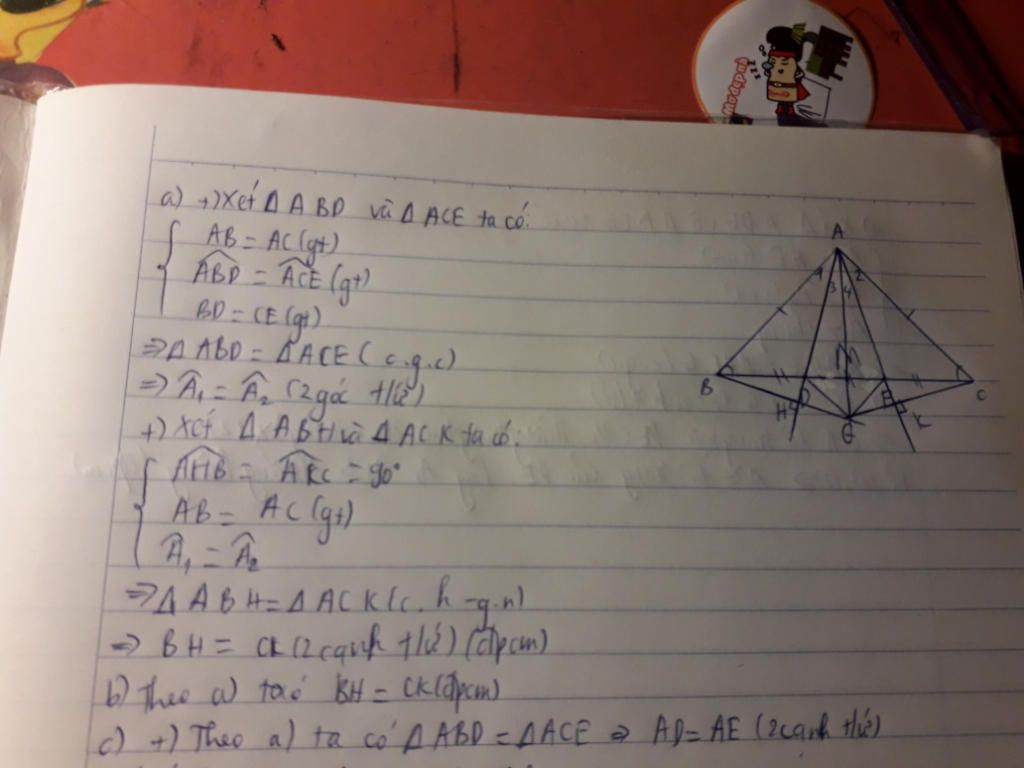 modipai
zzz
a) +) Xét Δ ABD và Δ ACE ta có:
AB = AC (gt)
ABD = ACE (gt)
BD = CE (gt)
⇒ Δ ABD = Δ ACE (c.g.c)
⇒ Â₁ = Â₂ (2 góc t/ứ)
+) Xét Δ ABH và Δ ACK ta có:
AHB = AKC = 90°
AB = AC (gt)
Â₁ = Â₂
⇒ Δ ABH = Δ ACK (c.h - g.n)
⇒ BH = CK (2 cạnh t/ứ) (đpcm)
b) Theo a) ta có BH = CK (đpcm)
c) +) Theo a) ta có Δ ABD = Δ ACE ⇒ AD = AE (2 cạnh t/ứ)
A
1 3 4 2
M
B D E C
H K
G